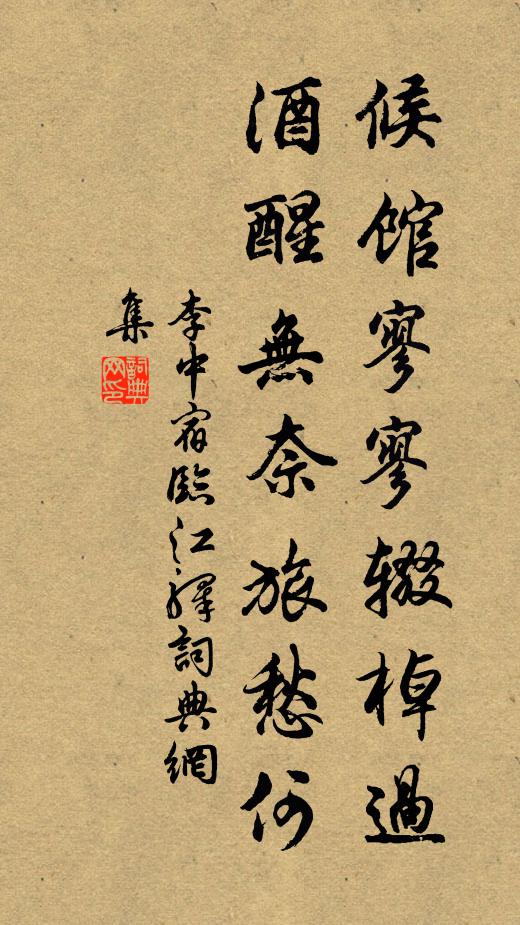 候馆寥寥辍棹過
酒醒無奈旅愁何
李中宿臨江驛詞典網
集
詞典
网印